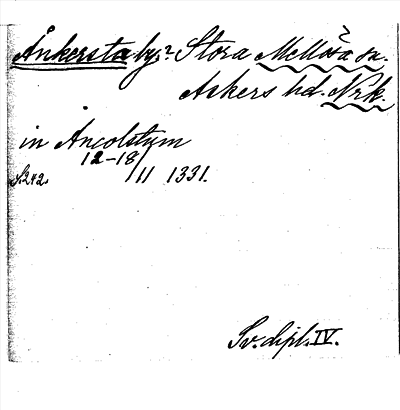 Ånkersta by? Stora Mellösa sn.
Askers hd. Nrk.
in Ancolstum
12-18/11 1331.
S. 242.
Sv. dipl. IV.